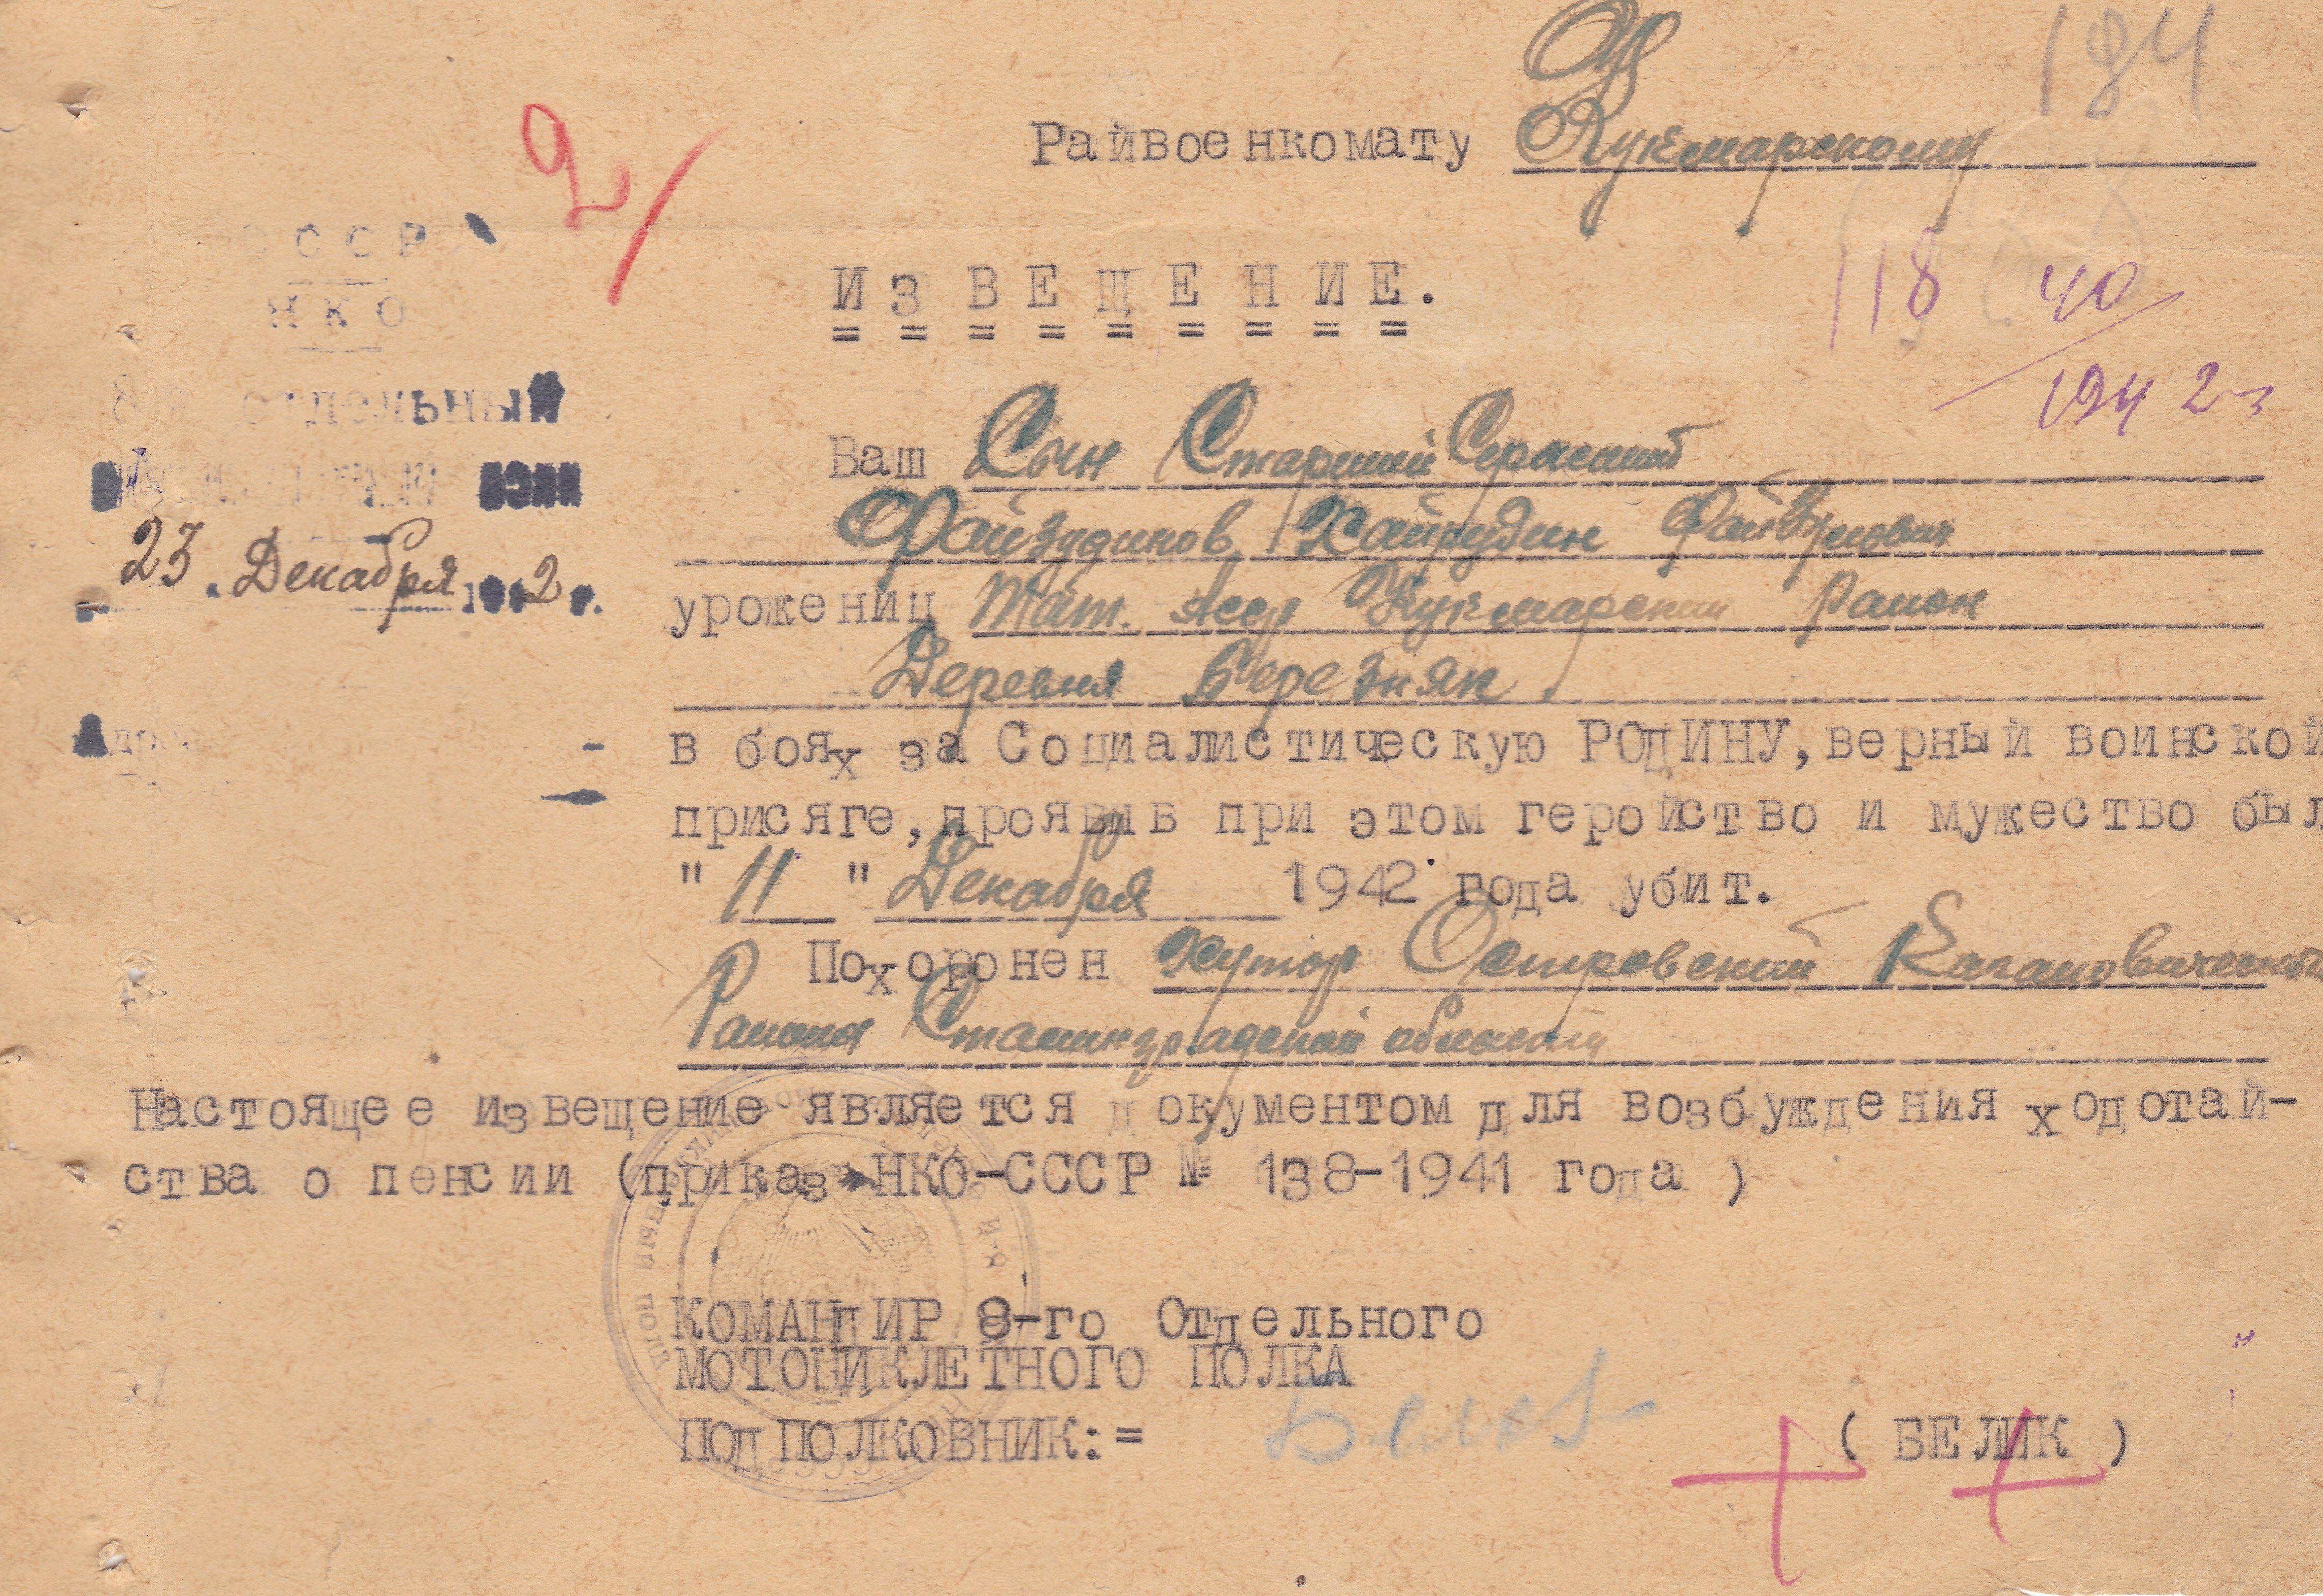 184
Райвоенкомату Кукморскому
2/
СССР
НКО
ИЗВЕЩЕНИЕ.
118 40
1942
отдельный
Ваш Сын Старший Сержант
Файзудинов Хайрудин
23 . Декабря 1942 г.
урожениц Тат. Асср Кукморский Район
Деревня Березняк.
в боях за Социалистическую РОдИНУ, верный воинской
присяге, проявив при этом геройство и мужество был
" 11 " Декабря 1942 года убит.
Похоронен Хутор Островский Кагановический
Района Сталинградской области
Настоящее извещение является документом для возбуждения ходотай-
ства о пенсии (приказ НКО-СССР № 138-1941 года )
КОМАНдИР 8-го Отдельного
МОТОЦИКЛЕТНОГО ПОЛКА
ПОдПОЛКОВНИК:= ( БЕЛИК )